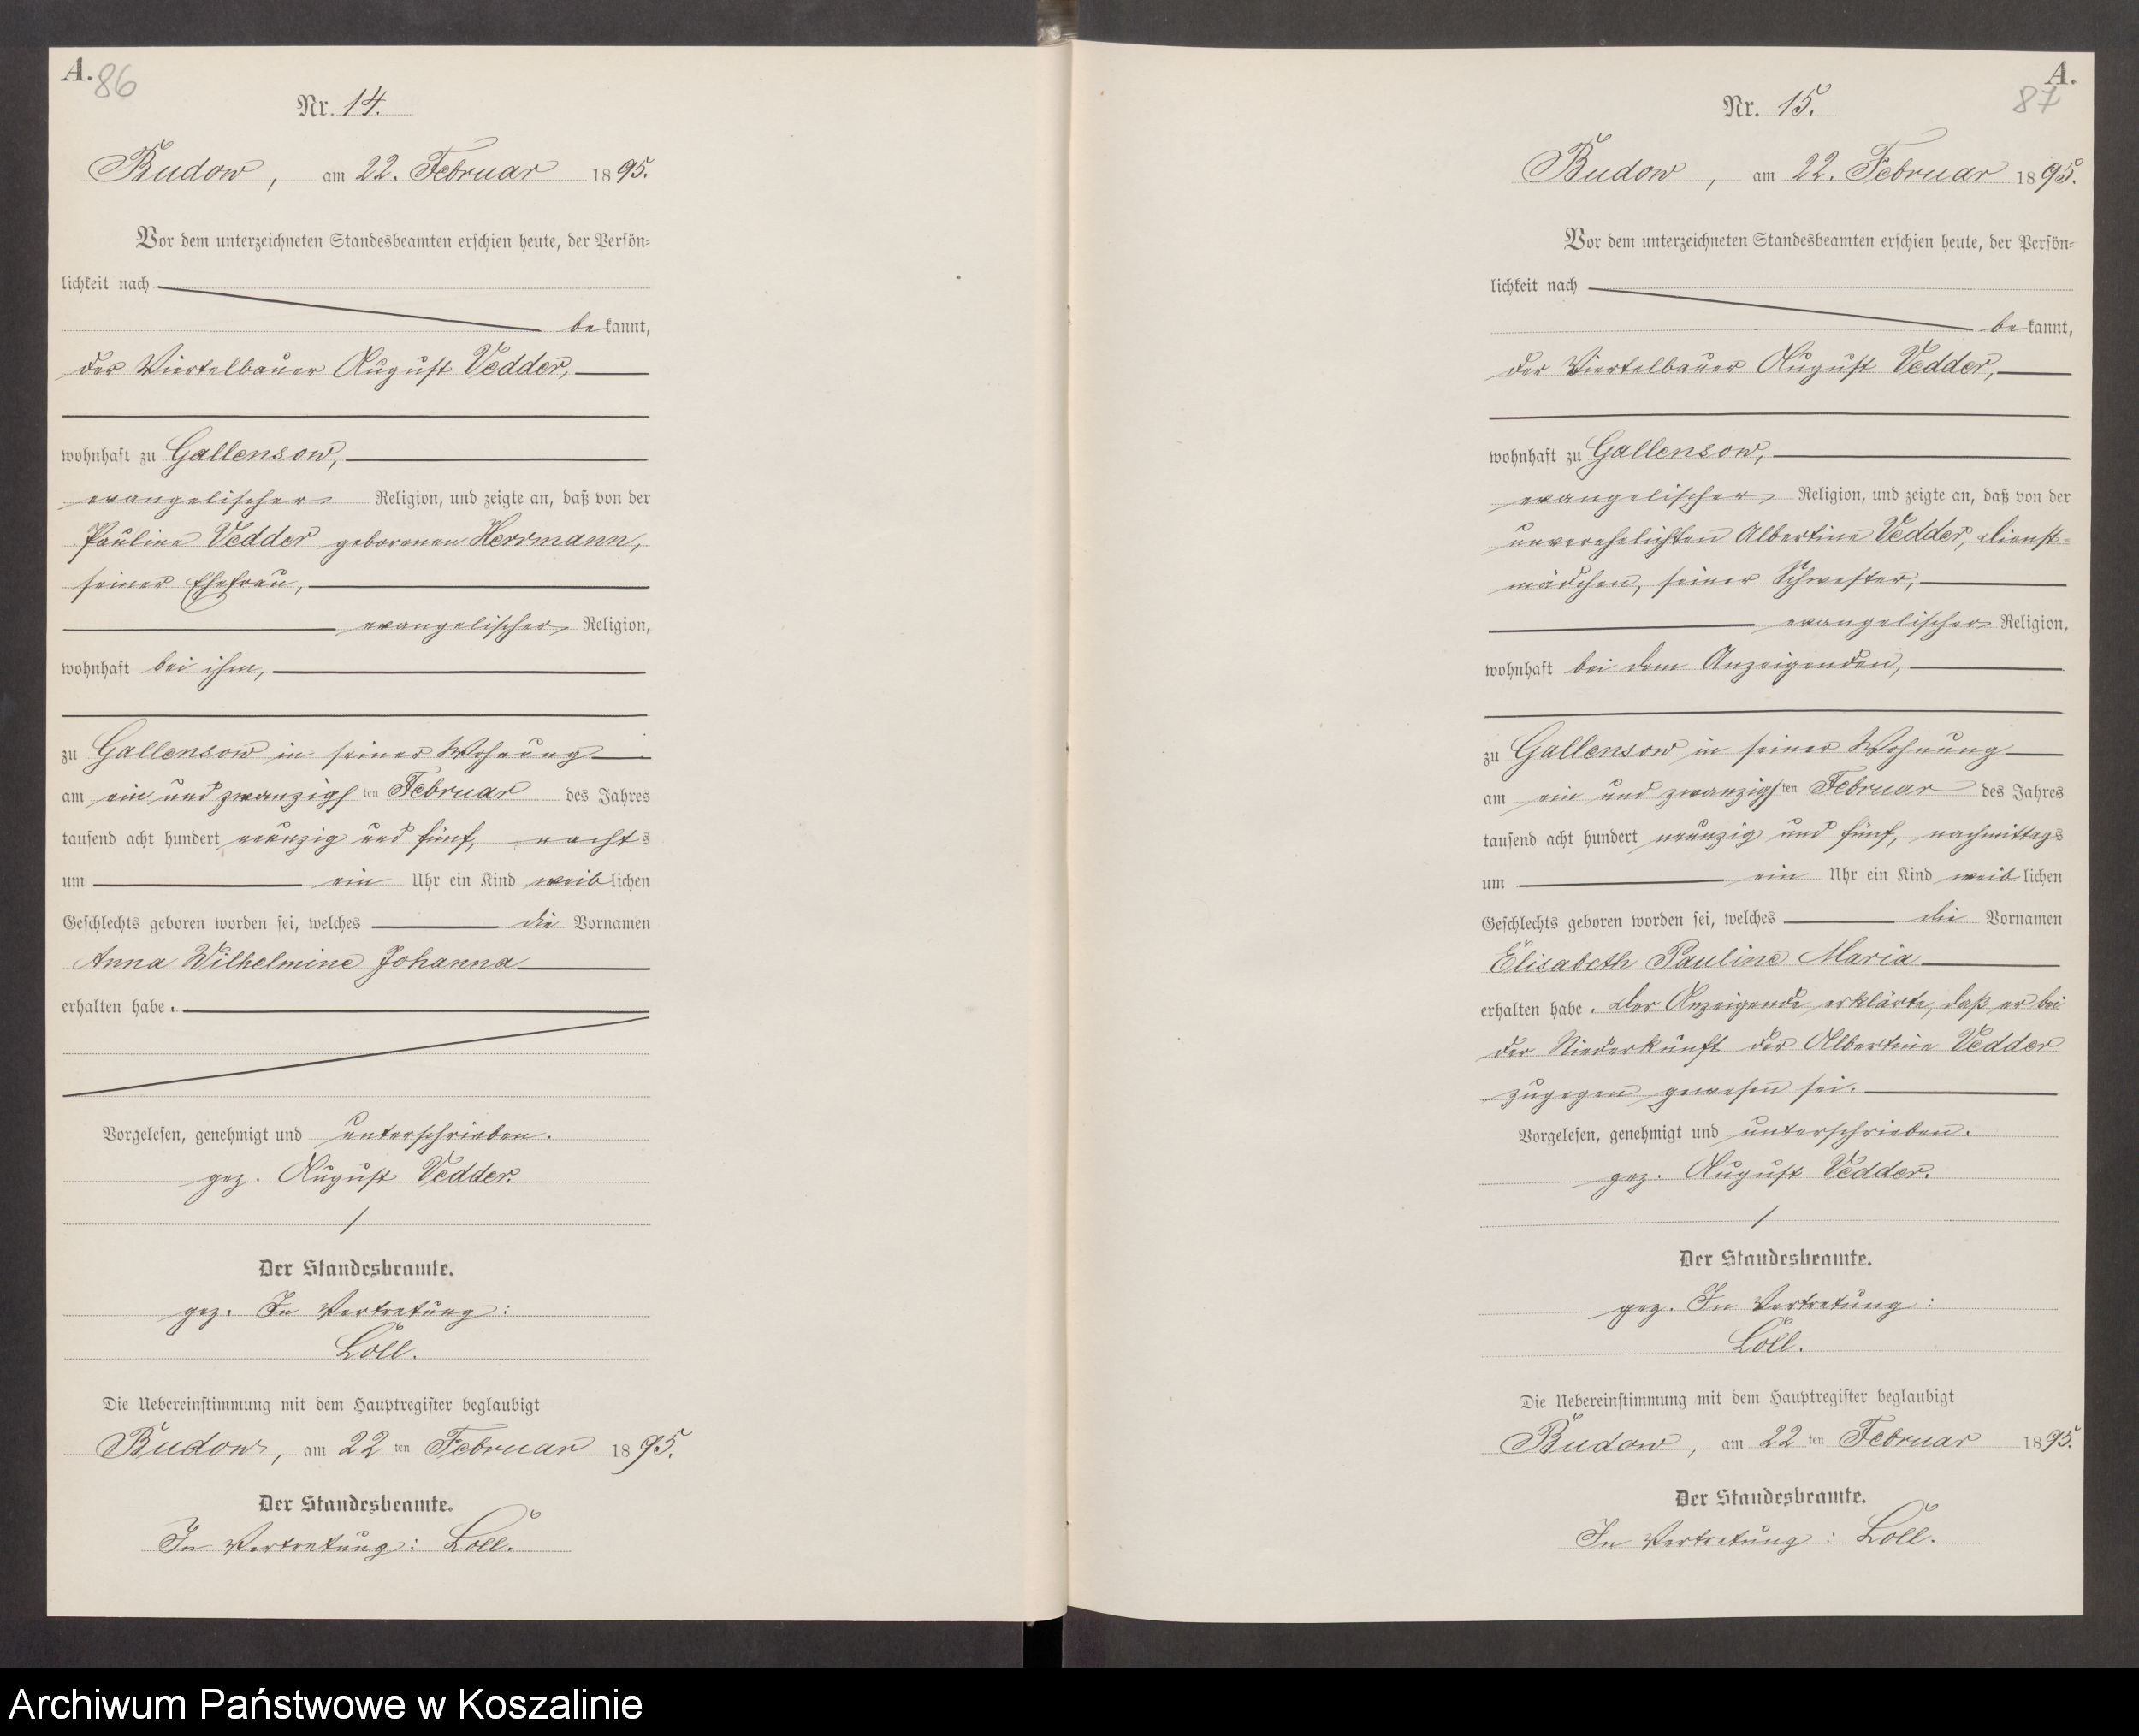 A.
86
Nr. 14.
Budow, am 22. Februar 1895.
Vor dem unterzeichneten Standesbeamten erschien heute, der Persön-
lichkeit nach
bekannt,
der Viertelbauer August Vedder,
wohnhaft zu Gallensow,
evangelischer Religion, und zeigte an, daß von der
Pauline Vedder geborenen Herrmann,
seiner Ehefrau,
evangelischer Religion,
wohnhaft bei ihm,
zu Gallensow in seiner Wohnung
am ein und zwanzigsten Februar des Jahres
tausend acht hundert neunzig und fünf, nachts
um ein Uhr ein Kind weiblichen
Geschlechts geboren worden sei, welches die Vornamen
Anna Wilhelmine Johanna
erhalten habe.
Vorgelesen, genehmigt und unterschrieben.
gez. August Vedder.
/
Der Standesbeamte.
gez. In Vertretung:
Loll.
Die Uebereinstimmung mit dem Hauptregister beglaubigt
Budow, am 22ten Februar 1895.
Der Standesbeamte.
In Vertretung: Loll.
A.
87
Nr. 15.
Budow, am 22. Februar 1895.
Vor dem unterzeichneten Standesbeamten erschien heute, der Persön-
lichkeit nach
bekannt,
der Viertelbauer August Vedder,
wohnhaft zu Gallensow,
evangelischer Religion, und zeigte an, daß von der
unverehelichten Albertine Vedder, Dienst-
mädchen, seiner Schwester,
evangelischer Religion,
wohnhaft bei dem Anzeigenden,
zu Gallensow in seiner Wohnung
am ein und zwanzigsten Februar des Jahres
tausend acht hundert neunzig und fünf, nachmittags
um ein Uhr ein Kind weiblichen
Geschlechts geboren worden sei, welches die Vornamen
Elisabeth Pauline Maria
erhalten habe. Der Anzeigende erklärte, daß er bei
der Niederkunft der Albertine Vedder
zugegen gewesen sei.
Vorgelesen, genehmigt und unterschrieben.
gez. August Vedder.
/
Der Standesbeamte.
gez. In Vertretung:
Loll.
Die Uebereinstimmung mit dem Hauptregister beglaubigt
Budow, am 22ten Februar 1895.
Der Standesbeamte.
In Vertretung: Loll.
Archiwum Państwowe w Koszalinie